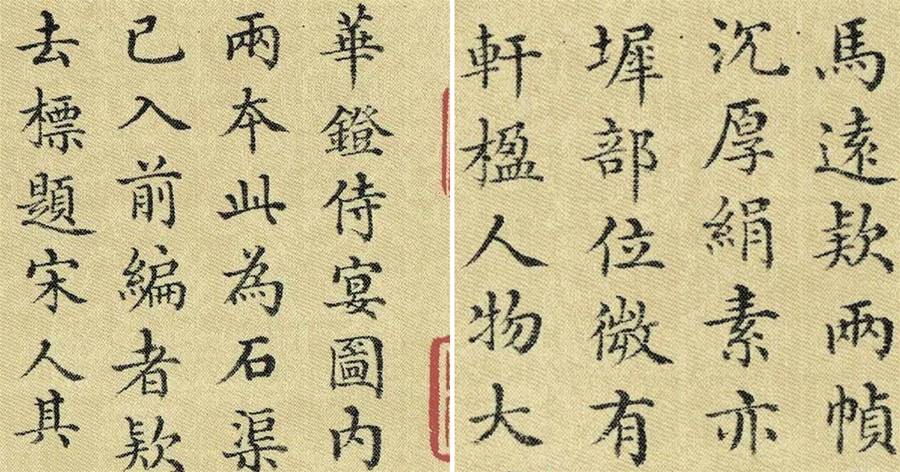 華鐙侍宴圖内
兩本此為石渠
已入前編者欵
去標題宋人其
馬遠欵兩幀
沉厚絹素亦
墀部位微有
軒楹人物大